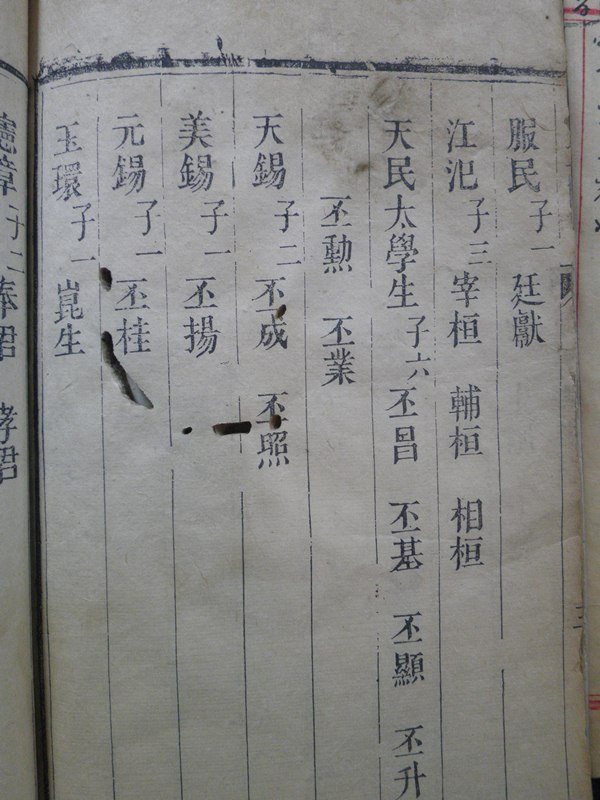 服民子一廷獻
江汜子三宰桓 輔桓 相桓
天民太學生子六丕昌 丕基 丕顯 丕升
丕勲 丕業
天錫子二丕成 丕照
美錫子一丕揚
元錫子一丕桂
玉環子一崑生
憲章子二奉君 孝君